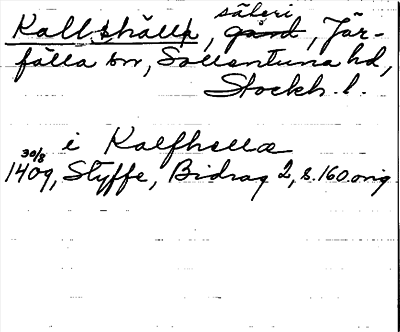 säteri
Kallhäll, gård, Jär-
fälla sn, Sollentuna hd,
Stockh. l.
i Kalfhella
30/8
1409, Styffe, Bidrag 2, s. 160. orig.